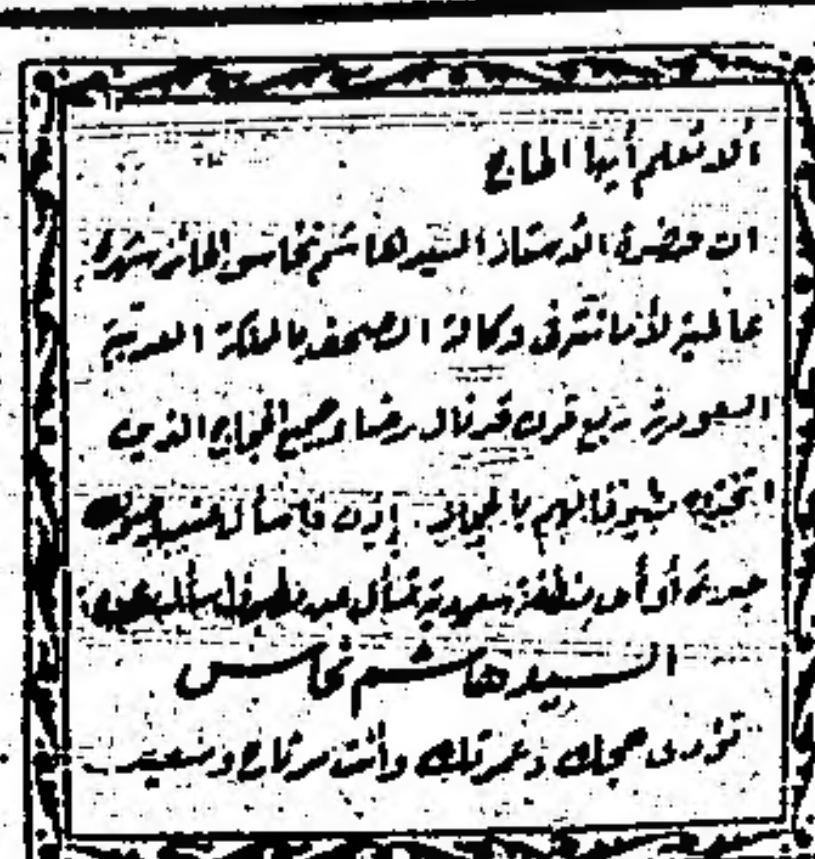 ألا تعلم أيها الحاج
ان حضرة الأستاذ السيد هاشم نحاس الحائز شهرة
عالمية لأمانته في وكالة الصحف بالمملكة العربية
السعودية ربع قرن قد نال رضا جميع الحجاج الذين
بالحجاز إذن فاسأل عند
جدة أو أى منطقة سعودية تسأل
السيد هاشم نحاس
تؤدى حجك وعمرتك وأنت مرتاح وسعيد